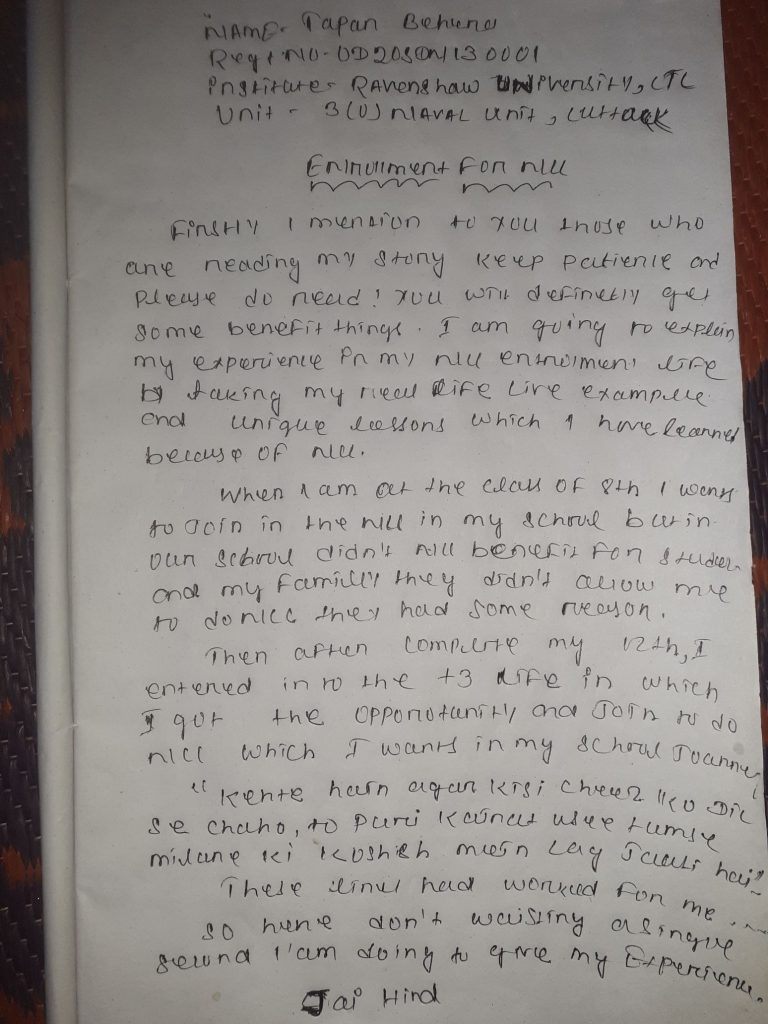 NAME- Tapan Behera
Regt NO- OD20SDN1130001
Institute- Ravenshaw University, CTC
Unit - 3(O) NAVAL Unit, Cuttack
Enrollment For NCC
Firstly I mension to you those who
are reading my story keep patience and
please do read! You will definetly get
some benefit things. I am going to explain
my experience in my NCC enrolment life
by taking my real life live example
and unique lessons which I have learned
because of NCC.
When I am at the class of 8th I wants
to Join in the NCC in my school but in
our school didn't NCC benefit for studen
and my family they didn't allow me
to do NCC they had some reason.
Then after complete my 12th, I
entered into the +3 life in which
I got the opportunity and Join to do
NCC which I wants in my school Journey
"Kehte hain agar kisi cheez ko Dil
se chaho, to puri kainat usee tumse
milane ki koshish mein lag Jaati hai"
These lines had worked for me...
so here don't waisting a single
second I'am going to give my Experience.
Jai Hind